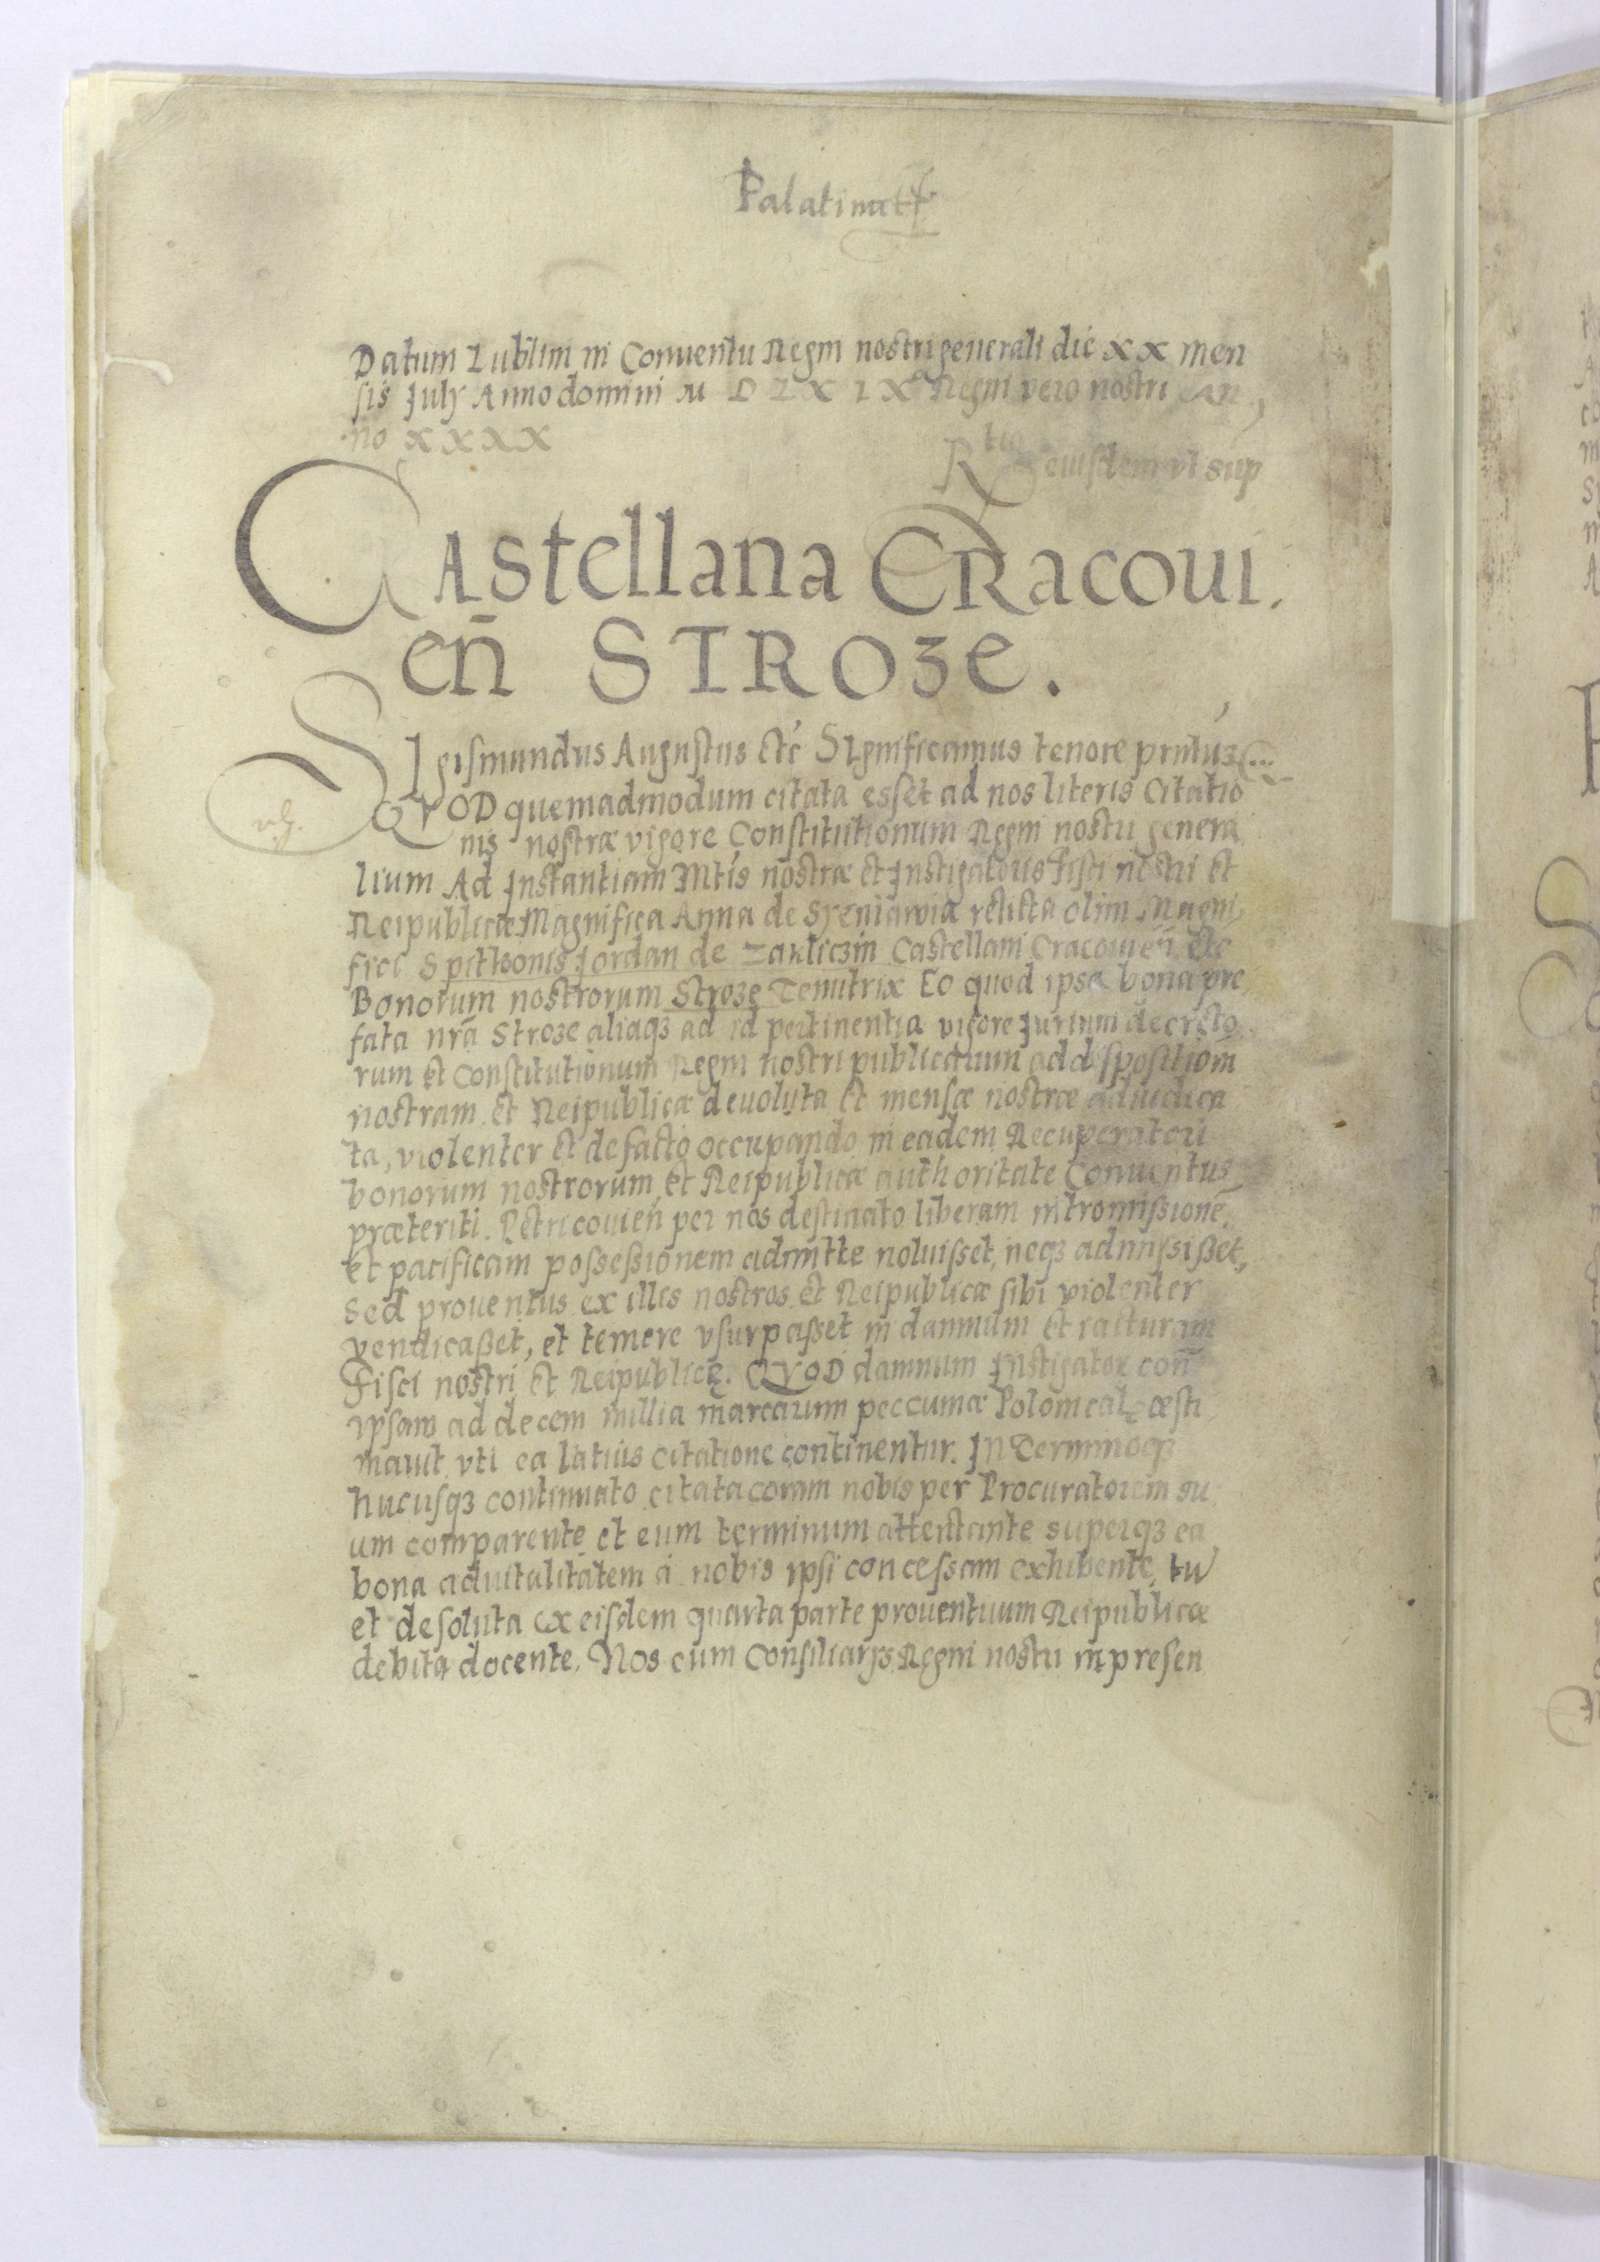 Palatinatt
Datum Lublini in Conuentu Regni nostri generali die xx men
sis July Anno domini M D L X I X Regni vero nostri an
no xxxx
Rtio eiusdem vt sup
CAstellana CRacoui.
en̄ STROZE.
SIgismundus Augustus etc̄ SIgnificamus tenore prntiuz
QVOD quemadmodum citata esset ad nos literis Citatio
nis nostræ vigore Constitutionum Regni nostri genera
lium Ad Instantiam Mtis nostræ et Instigatoris Fisci nostri et
Reipublicæ Magnifica Anna de Syeniawia relicta olim Magni
fici Spithonis Jordan de Zakliczin Castellani Cracouien̄ etc
Bonorum nostrorum Stroze Tenutrix Eo quod ipsa bona pre
fata nr̄a Stroze aliaqȝ ad id pertinentia vigore Jurium decreto
rum et Constitutionum Regni nostri publicarum ad dispositiom̄
nostram et Reipublicæ deuoluta et mensæ nostræ adiudica
ta, violenter et de facto occupando in eadem Recuperatori
bonorum nostrorum et Reipublicæ authoritate Conuentus
præteriti Petricouien̄ per nos destinato liberam intromissionē
et pacificam possessionem admitte noluisset, neqȝ admisisset,
Sed prouentus ex illis nostros et Reipublicæ sibi violenter
vendicasset, et temere vsurpasset in damnum et iacturam
Fisci nostri et Reipublicę. QVOD damnum Instigator con̄
ipsam ad decem millia marcarum peccuniæ Polonicalȩ æsti
mauit vti ea latius citatione continentur. In Terminoqȝ
hucusqȝ continuato citata coram nobis per Procuratorem su
um comparente et eum terminum attentante superqȝ ea
bona aduitalitatem a nobis ipsi concessam exhibente, tū
et de soluta ex eisdem quarta parte prouentuum Reipublicæ
debita docente. Nos cum Consiliarijs Regni nostri in presen